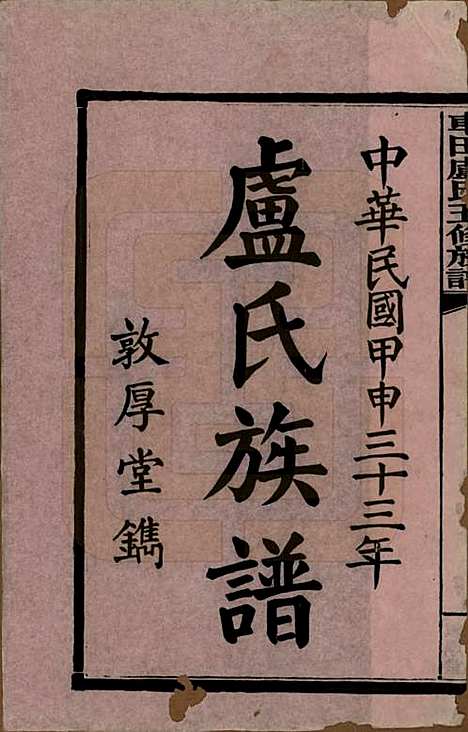 中華民國甲申三十三年
盧氏族譜
敦厚堂鐫